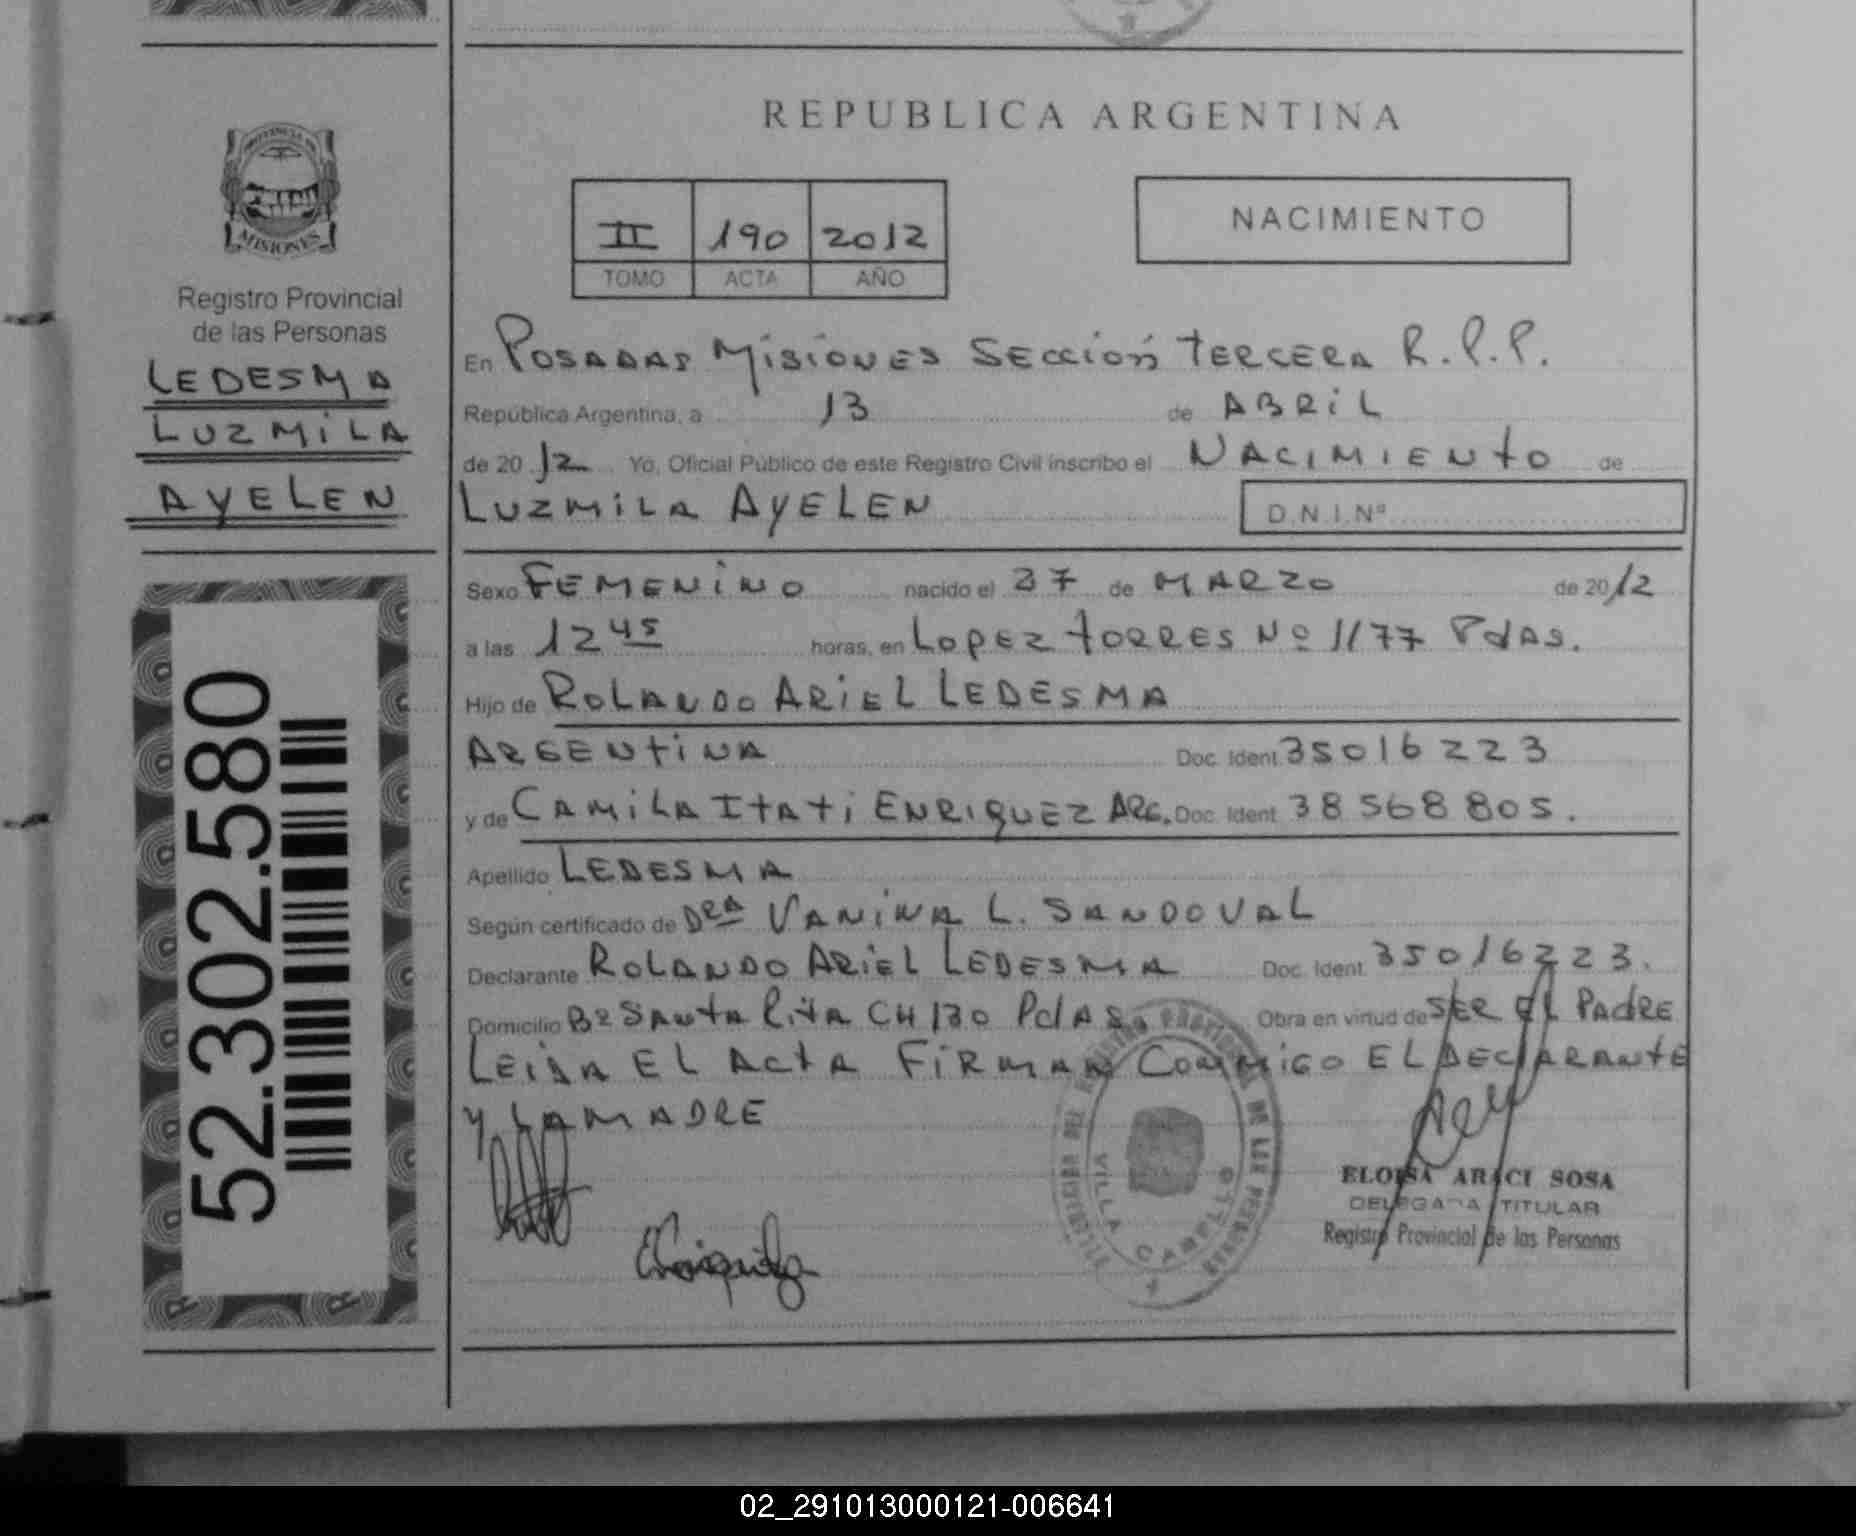 PROVINCIA DE
MISIONES
Registro Provincial
de las Personas
LEDESMA
LUZMILA
AYELEN
52.302.580
REPUBLICA ARGENTINA
II 190 2012
TOMO ACTA AÑO
NACIMIENTO
En POSADAS MISIONES SECCIÓN TERCERA R.P.P.
República Argentina, a 13 de ABRIL
de 20 12 Yo, Oficial Público de este Registro Civil inscribo el NACIMIENTO de
LUZMILA AYELEN D.N.I.Nº
Sexo FEMENINO nacido el 27 de MARZO de 2012
a las 12 45 horas, en LOPEZ TORRES Nº 1177 PdAS.
Hijo de ROLANDO ARIEL LEDESMA
ARGENTINA Doc. Ident. 35016223
y de CAMILA ITATI ENRIQUEZ ARG. Doc. Ident. 38568805.
Apellido LEDESMA
Según certificado de DRA VANINA L. SANDOVAL
Declarante ROLANDO ARIEL LEDESMA Doc. Ident. 35016223.
Domicilio Bº SANTA RITA CH 130 PdAS. Obra en virtud de SER EL PADRE
LEIDA EL ACTA FIRMAN CONMIGO EL DECLARANTE
Y LA MADRE
REGISTRO PROVINCIAL DE LAS PERSONAS
VILLA CABELLO
ELOISA ARACI SOSA
DELEGADA TITULAR
Registro Provincial de las Personas
02_291013000121-006641